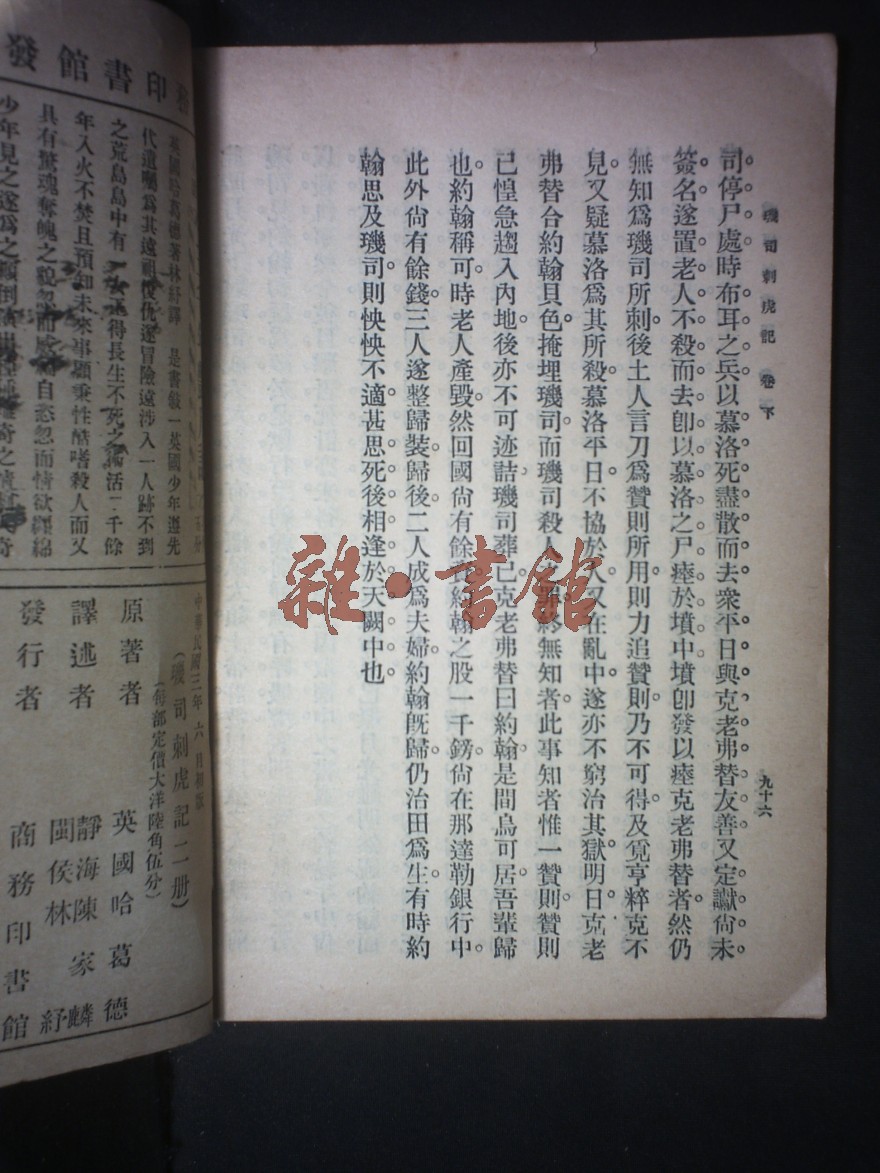 璣司刺虎記 卷下
九十六
司停尸處時布耳之兵以慕洛死盡散而去。衆平日與克老弗替友善又定讞尙未
簽名。遂置老人不殺而去。卽以慕洛之尸瘞於墳中。墳卽發以瘞克老弗替者。然仍
無知爲璣司所刺。後土人言刀爲贊則所用。則力追贊則乃不可得。及覓亨粹克不
見。又疑慕洛爲其所殺。慕洛平日不協於人。又在亂中。遂亦不窮治其獄。明日克老
弗替合約翰貝色掩埋璣司。而璣司殺人之 終無知者。此事知者惟一贊則。贊則
已惶急趨入內地。後亦不可迹詰。璣司葬已。克老弗替曰。約翰。是間烏可居。吾輩歸
也。約翰稱可。時老人產毀。然回國尙有餘 約翰之股一千鎊。尙在那達勒銀行中。
此外尙有餘錢。三人遂整歸裝。歸後二人成爲夫婦。約翰旣歸。仍治田爲生。有時約
翰思及璣司。則怏怏不適。甚思死後相逢於天闕中也。
雜·書館
中華民國三年六月初版
(璣司刺虎記二册)
(每部定價大洋陸角伍分)
原著者 英國哈葛德
譯述者 靜海陳家麟
閩侯林紓
發行者 商務印書館
印書館發
英國哈葛德著林紓譯 是書敍一英國少年遵先
代遺囑爲其遠祖復仇遂冒險遠涉入一人跡不到
之荒島島中有一女 得長生不死之 活二千餘
年入火不焚且預知未來事顧秉性酷嗜殺人而又
具有驚魂奪魄之貌忽而 自恣忽而情欲纏綿
少年見之遂爲之顚倒 奇之